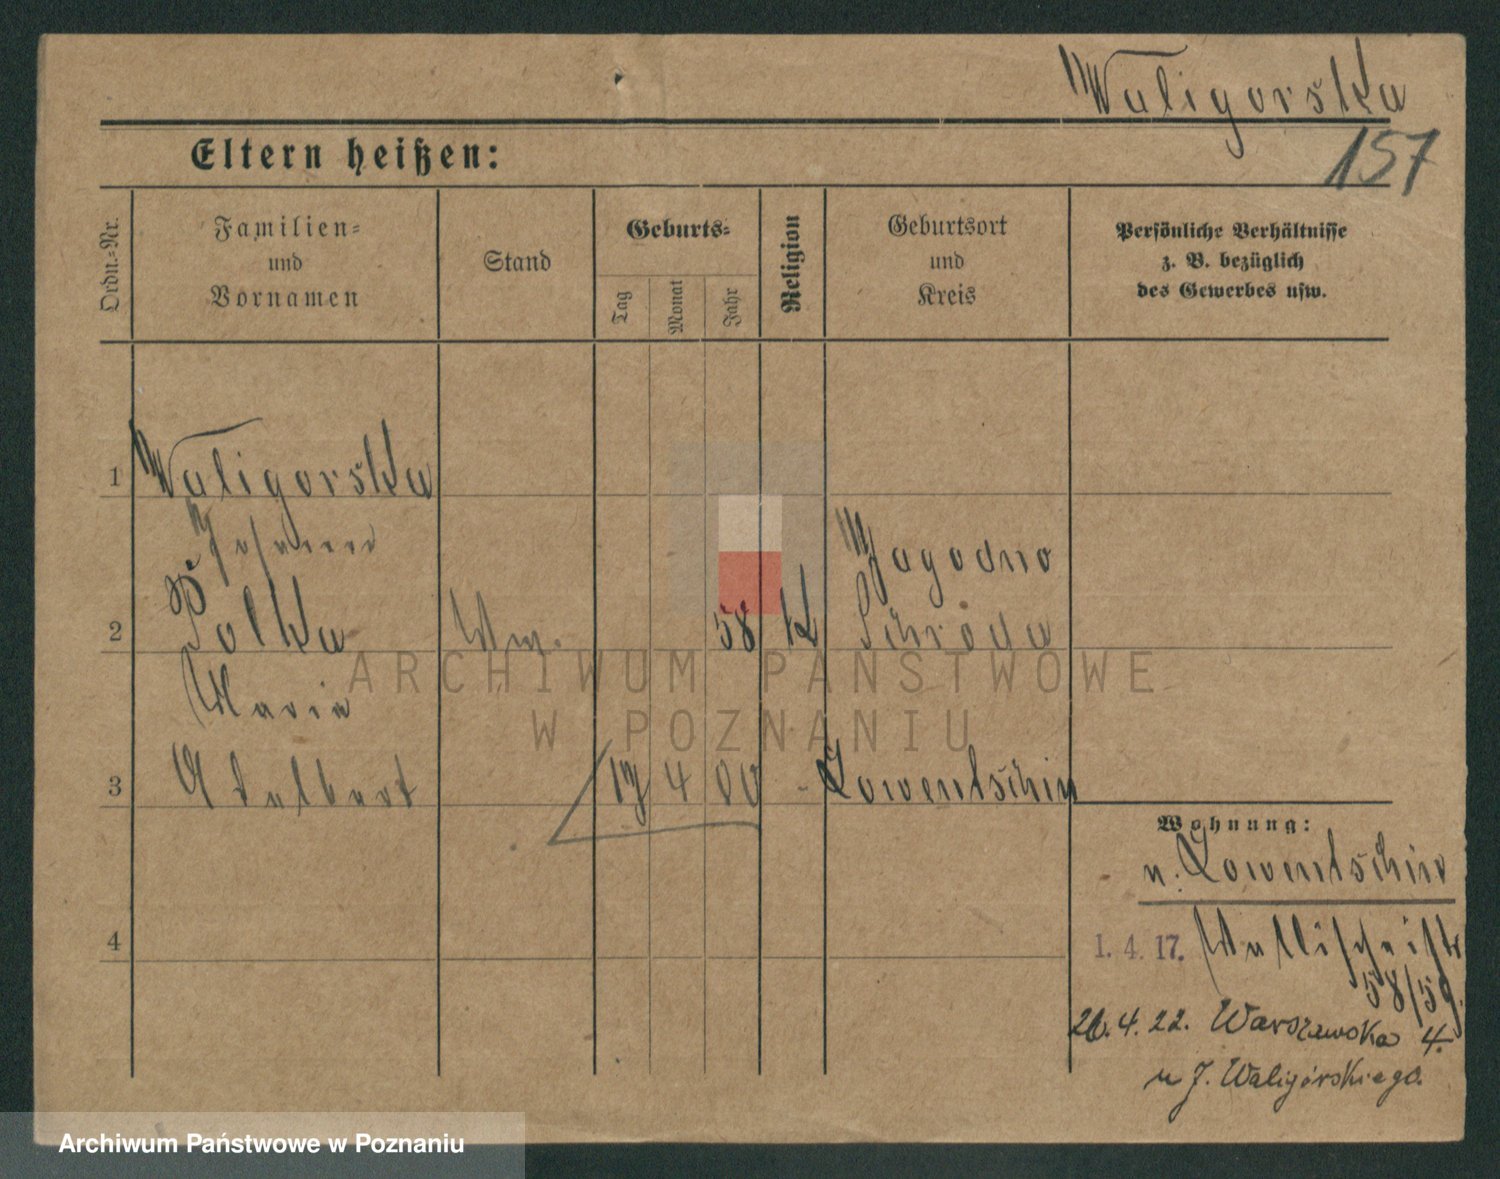 Waligorska
157
Eltern heißen:
Ordn.-Nr.
Familien-
und
Vornamen
Stand
Geburts-
Tag
Monat
Jahr
Religion
Geburtsort
und
Kreis
Persönliche Verhältnisse
z. B. bezüglich
des Gewerbes usw.
1 Waligorska
Jagodno
2 Polka Ww. 58 K Schroda
Maria
3 Adalbert 17 4 00 - Lowentschin
Wohnung:
n. Lowentschin
4
1. 4. 17. Wallischeistr
58/59.
26.4.22. Warszawska 4.
u J. Waligórskiego.
ARCHIWUM PAŃSTWOWE
W POZNANIU
Archiwum Państwowe w Poznaniu